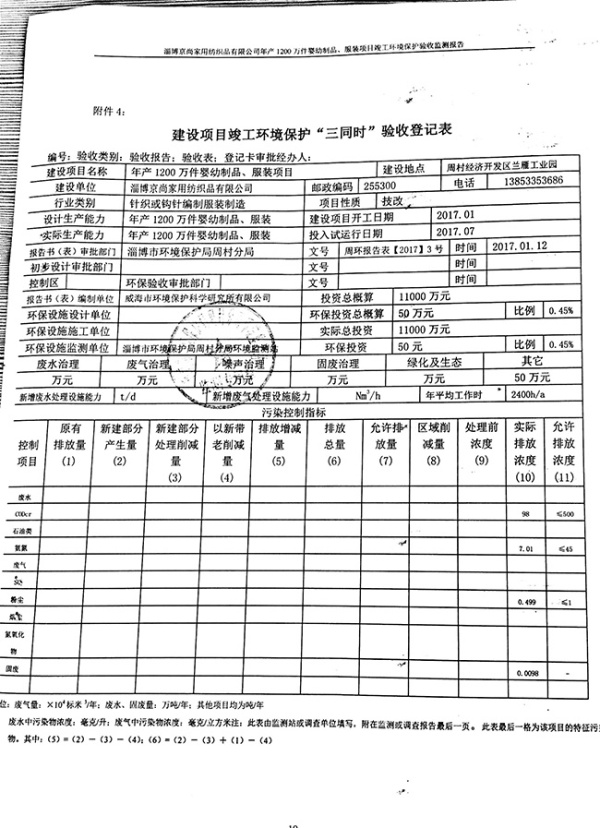 淄博京尚家用纺织品有限公司年产1200万件婴幼制品、服装项目竣工环境保护验收监测报告
附件4：
建设项目竣工环境保护“三同时”验收登记表
编号：验收类别：验收报告；验收表；登记卡审批经办人：
建设项目名称 年产1200万件婴幼制品、服装项目 建设地点 周村经济开发区兰雁工业园
建设单位 淄博京尚家用纺织品有限公司 邮政编码 255300 电话 13853353686
行业类别 针织或钩针编制服装制造 项目性质 技改
设计生产能力 年产1200万件婴幼制品、服装 建设项目开工日期 2017.01
实际生产能力 年产1200万件婴幼制品、服装 投入试运行日期 2017.07
报告书（表）审批部门 淄博市环境保护局周村分局 文号 周环报告表【2017】3号 时间 2017.01.12
初步设计审批部门 文号 时间
控制区 环保验收审批部门 文号 时间
报告书（表）编制单位 威海市环境保护科学研究所有限公司 投资总概算 11000万元
环保设施设计单位 环保投资总概算 50万元 比例 0.45%
环保设施施工单位 实际总投资 11000万元
环保设施监测单位 淄博市环境保护局周村分局环境监测站 环保投资 50元 比例 0.45%
废水治理 废气治理 噪声治理 固废治理 绿化及生态 其它
万元 万元 万元 万元 万元 50万元
新增废水处理设施能力 t/d 新增废气处理设施能力 Nm³/h 年平均工作时 2400h/a
污染控制指标
控制项目 原有排放量（1） 新建部分产生量（2） 新建部分处理削减量（3） 以新带老削减量（4） 排放增减量（5） 排放总量（6） 允许排放量（7） 区域削减量（8） 处理前浓度（9） 实际排放浓度（10） 允许排放浓度（11）
废水
CODcr 98 ≤500
石油类
氨氮 7.01 ≤45
废气
粉尘 0.499 ≤1
烟尘
氮氧化物
固废 0.0098 -
位：废气量：×10⁴标米³/年；废水、固废量：万吨/年；其他项目均为吨/年
废水中污染物浓度：毫克/升；废气中污染物浓度：毫克/立方米注：此表由监测站或调查单位填写，附在监测或调查报告最后一页。此表最后一格为该项目的特征污
物。其中：（5）=（2）－（3）－（4）；（6）=（2）－（3）＋（1）－（4）